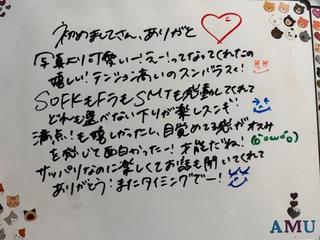 初めましてさん、ありがと
写真より可愛いー!えー!ってなってくれたの
嬉しい!テンション高いのスンバラスィ!
SOFKもドラもSMTも発動してくれて
どれも選べない下りが楽しスンギ
満点!も嬉しかったし、目覚めてる感が
オスみ
を感じて面白かったー!才能だね!
サッパリなのに楽しくてお話も聞いてくれて
ありがとう!またタイミングでー!
AMU